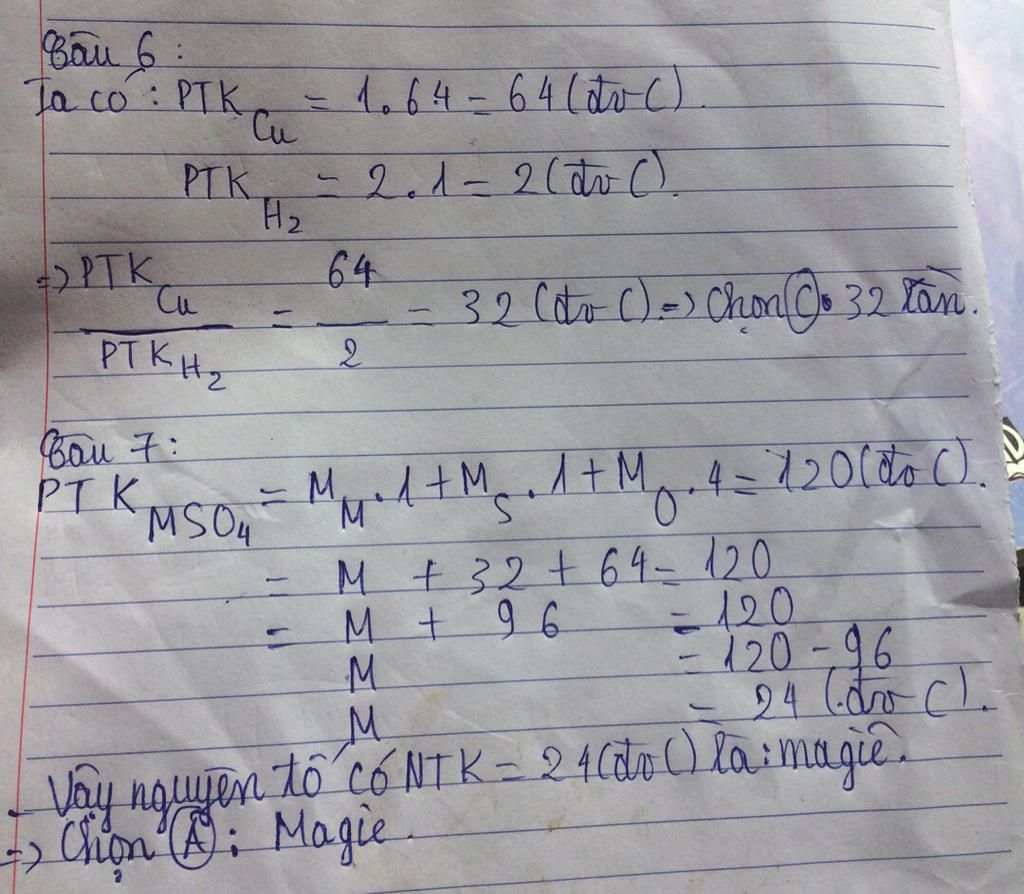 Câu 6 :
Ta có : PTK Cu = 1.64 = 64 (đvC).
PTK H2 = 2.1 = 2 (đvC).
=> PTK Cu / PTK H2 = 64 / 2 = 32 (đvC) => Chọn C. 32 lần.
Câu 7 :
PTK MSO4 = M M . 1 + M S . 1 + M O . 4 = 120 (đvC).
= M + 32 + 64 = 120
= M + 96 = 120
M = 120 - 96
M = 24 (đvC).
- Vậy nguyên tố có NTK = 24 (đvC) là : magiê.
=> Chọn A : Magie.